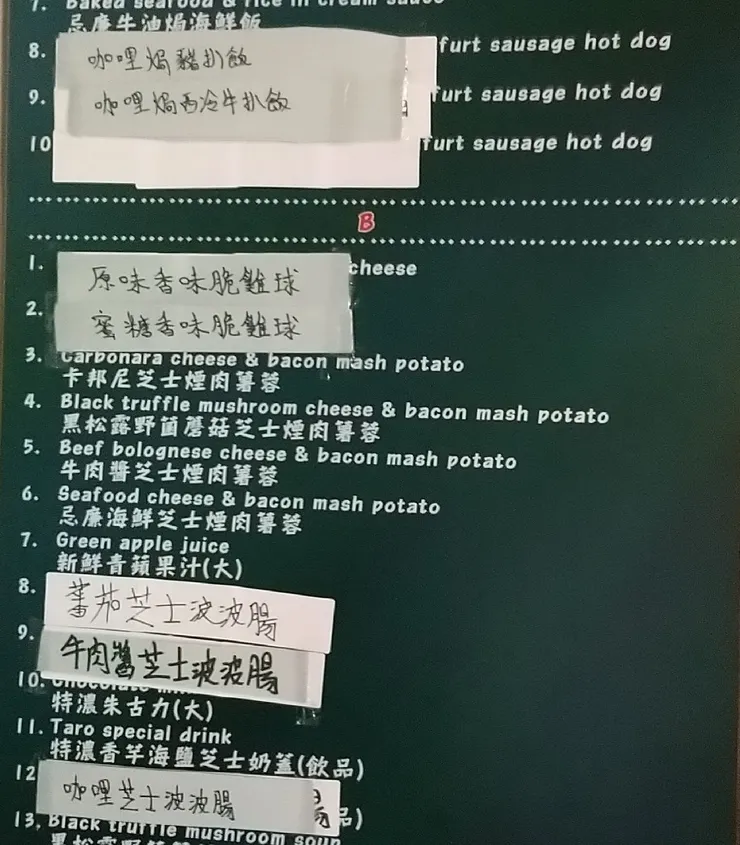 7. Baked seafood & rice in cream sauce
忌廉牛油焗海鮮飯
8. 咖哩焗豬扒飯 furt sausage hot dog
9. 咖哩焗西冷牛扒飯 furt sausage hot dog
10 furt sausage hot dog
B
1. 原味香味脆雞球 cheese
2. 蜜糖香味脆雞球
3. Carbonara cheese & bacon mash potato
卡邦尼芝士煙肉薯蓉
4. Black truffle mushroom cheese & bacon mash potato
黑松露野菌蘑菇芝士煙肉薯蓉
5. Beef bolognese cheese & bacon mash potato
牛肉醬芝士煙肉薯蓉
6. Seafood cheese & bacon mash potato
忌廉海鮮芝士煙肉薯蓉
7. Green apple juice
新鮮青蘋果汁(大)
8. 蕃茄芝士波波腸
9. 牛肉醬芝士波波腸
10. Chocolate
特濃朱古力(大)
11. Taro special drink
特濃香芋海鹽芝士奶蓋(飲品)
12 咖哩芝士波波腸 品)
13. Black truffle mushroom soup